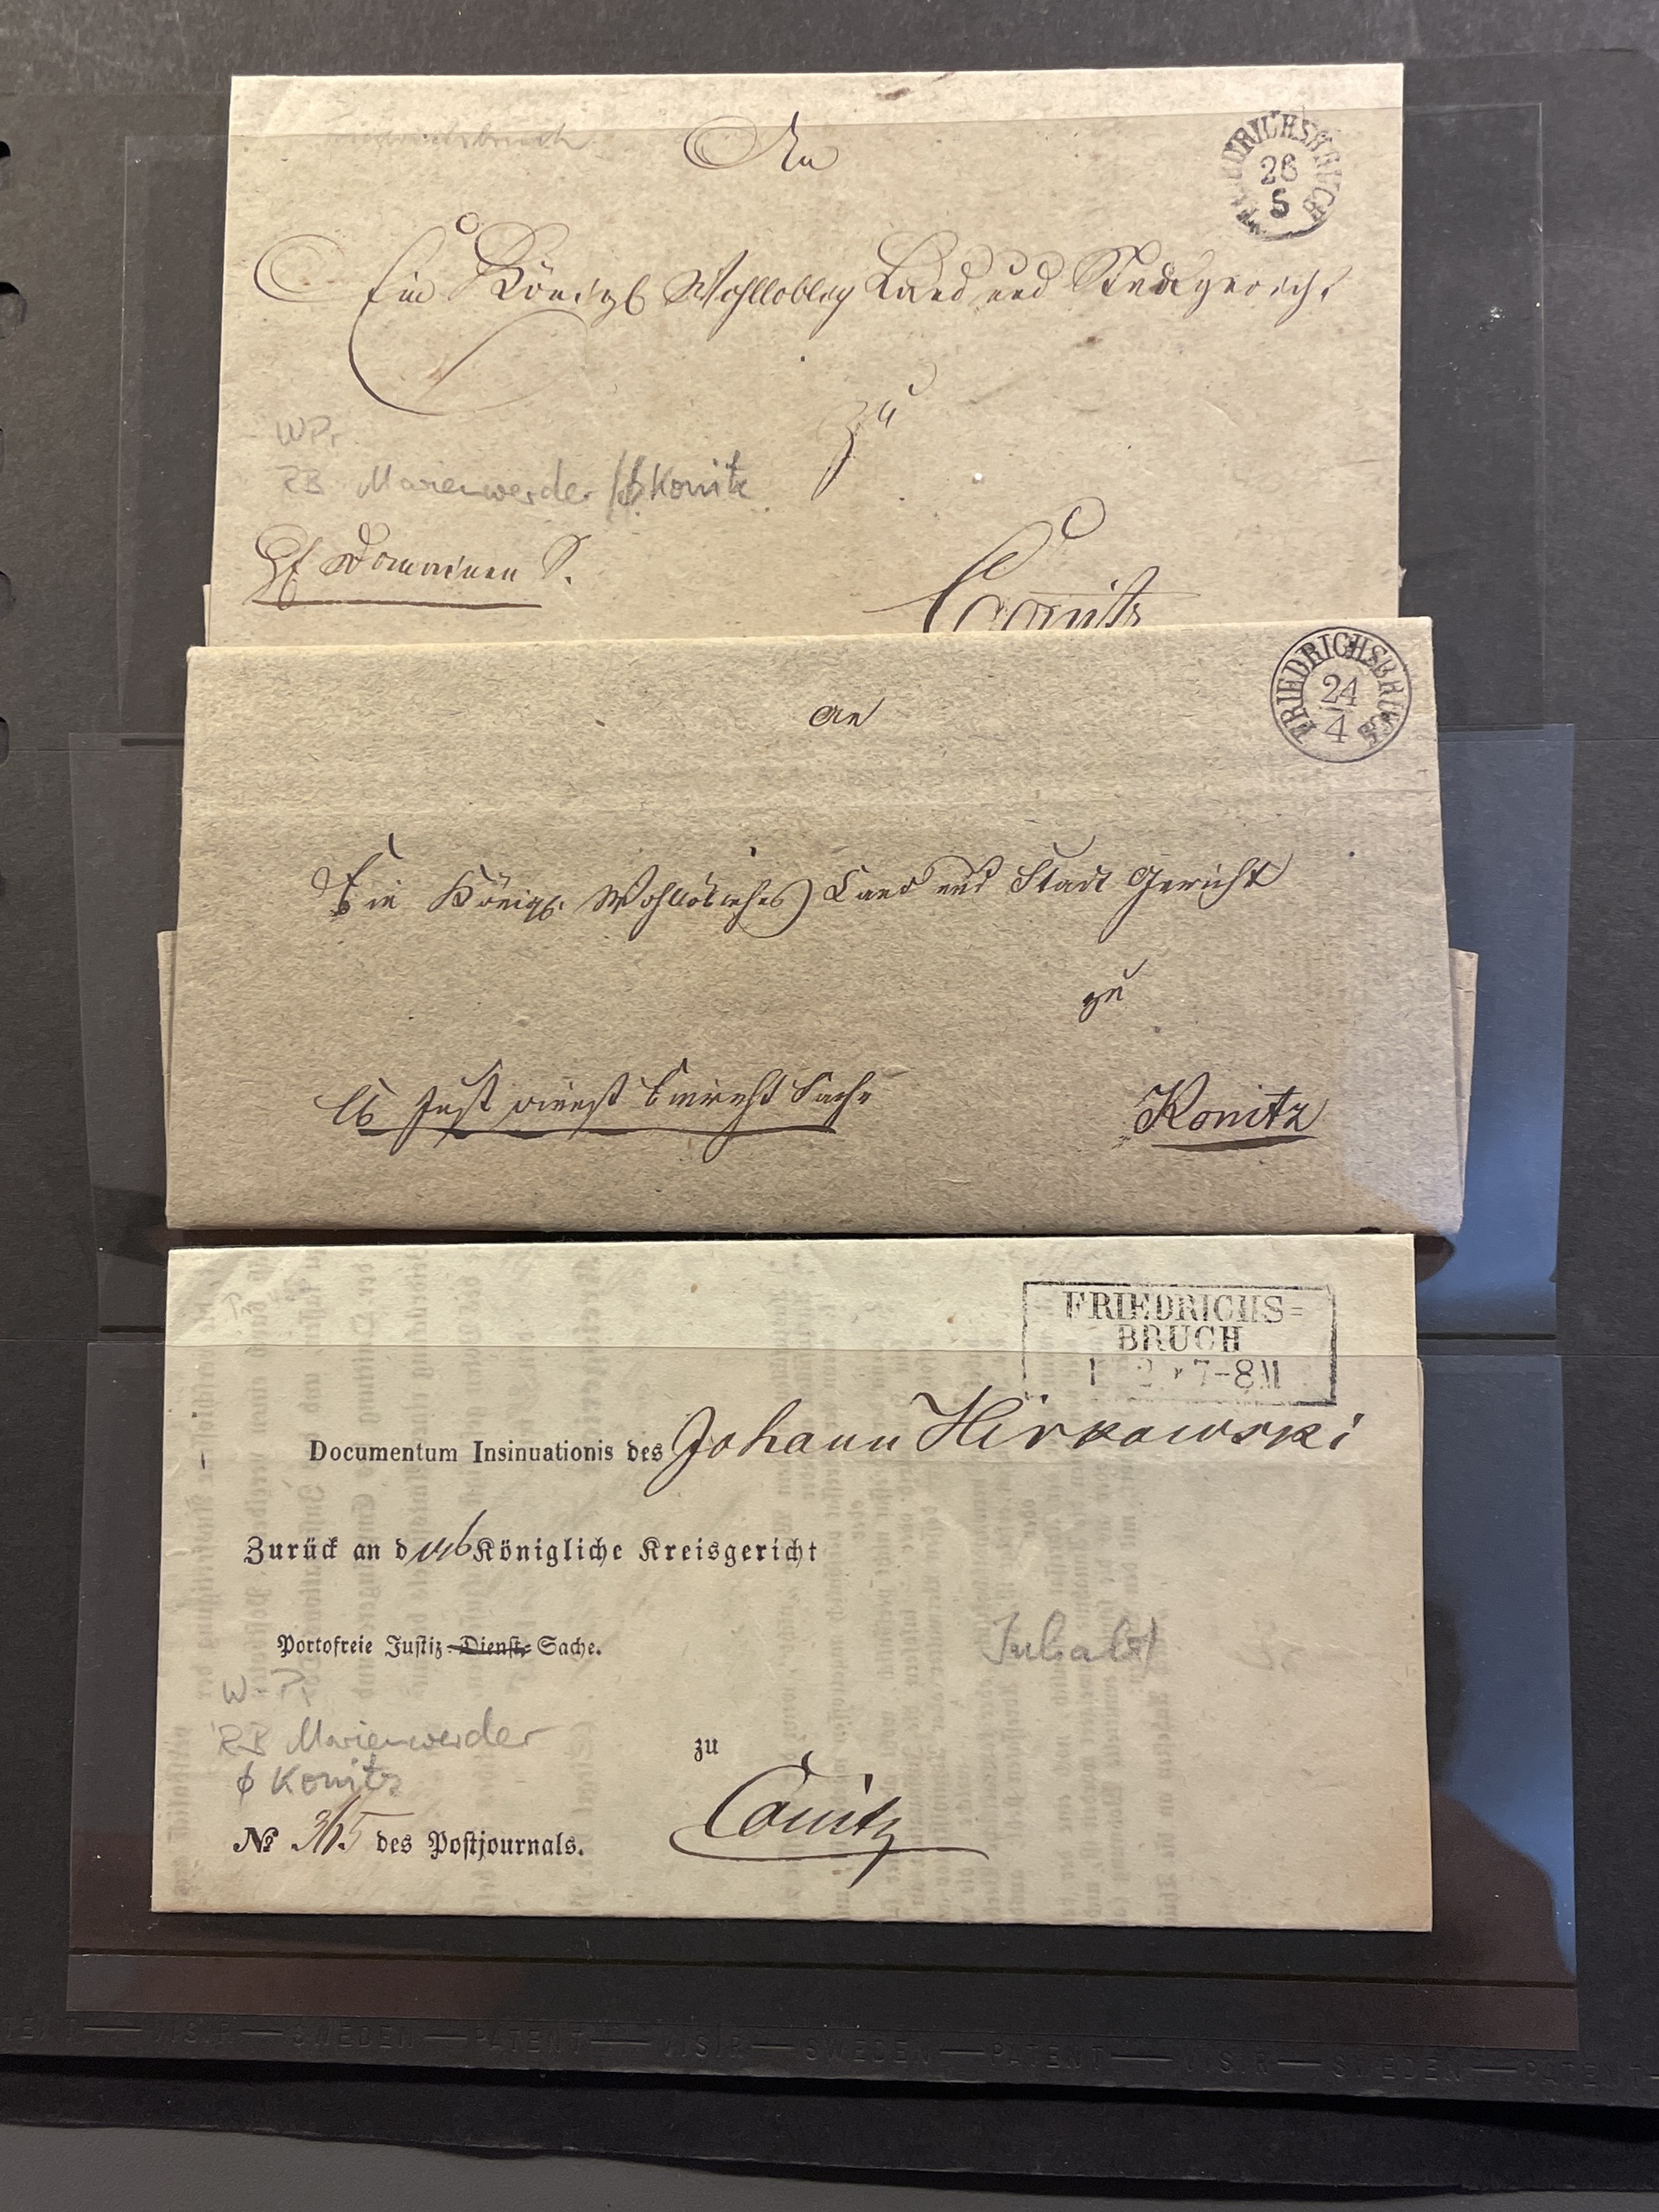 Friedrichsbruch
An
FRIEDRICHSBRUCH
26
5
Ein Königl Wohllöbl Land und Stadtgericht
zu
WPr
RB Marienwerder / Konitz
Conitz
An
FRIEDRICHSBRUCH
24
4
Ein Königl. Wohllöbliches Land und Stadt Gericht
zu
Just Dienst Sache
Konitz
FRIEDRICHS=
BRUCH
7-8 M
Documentum Insinuationis des Johann Hirkowski
Zurück an das Königliche Kreisgericht
Portofreie Justiz-Dienst-Sache.
Inhalt
W-Pr
RB Marienwerder
Konitz
zu
Conitz
№ 365 des Postjournals.
PATENT — VISIR — SWEDEN — PATENT — VISIR — SWEDEN — PATENT — VISIR — SWEDEN — PATENT